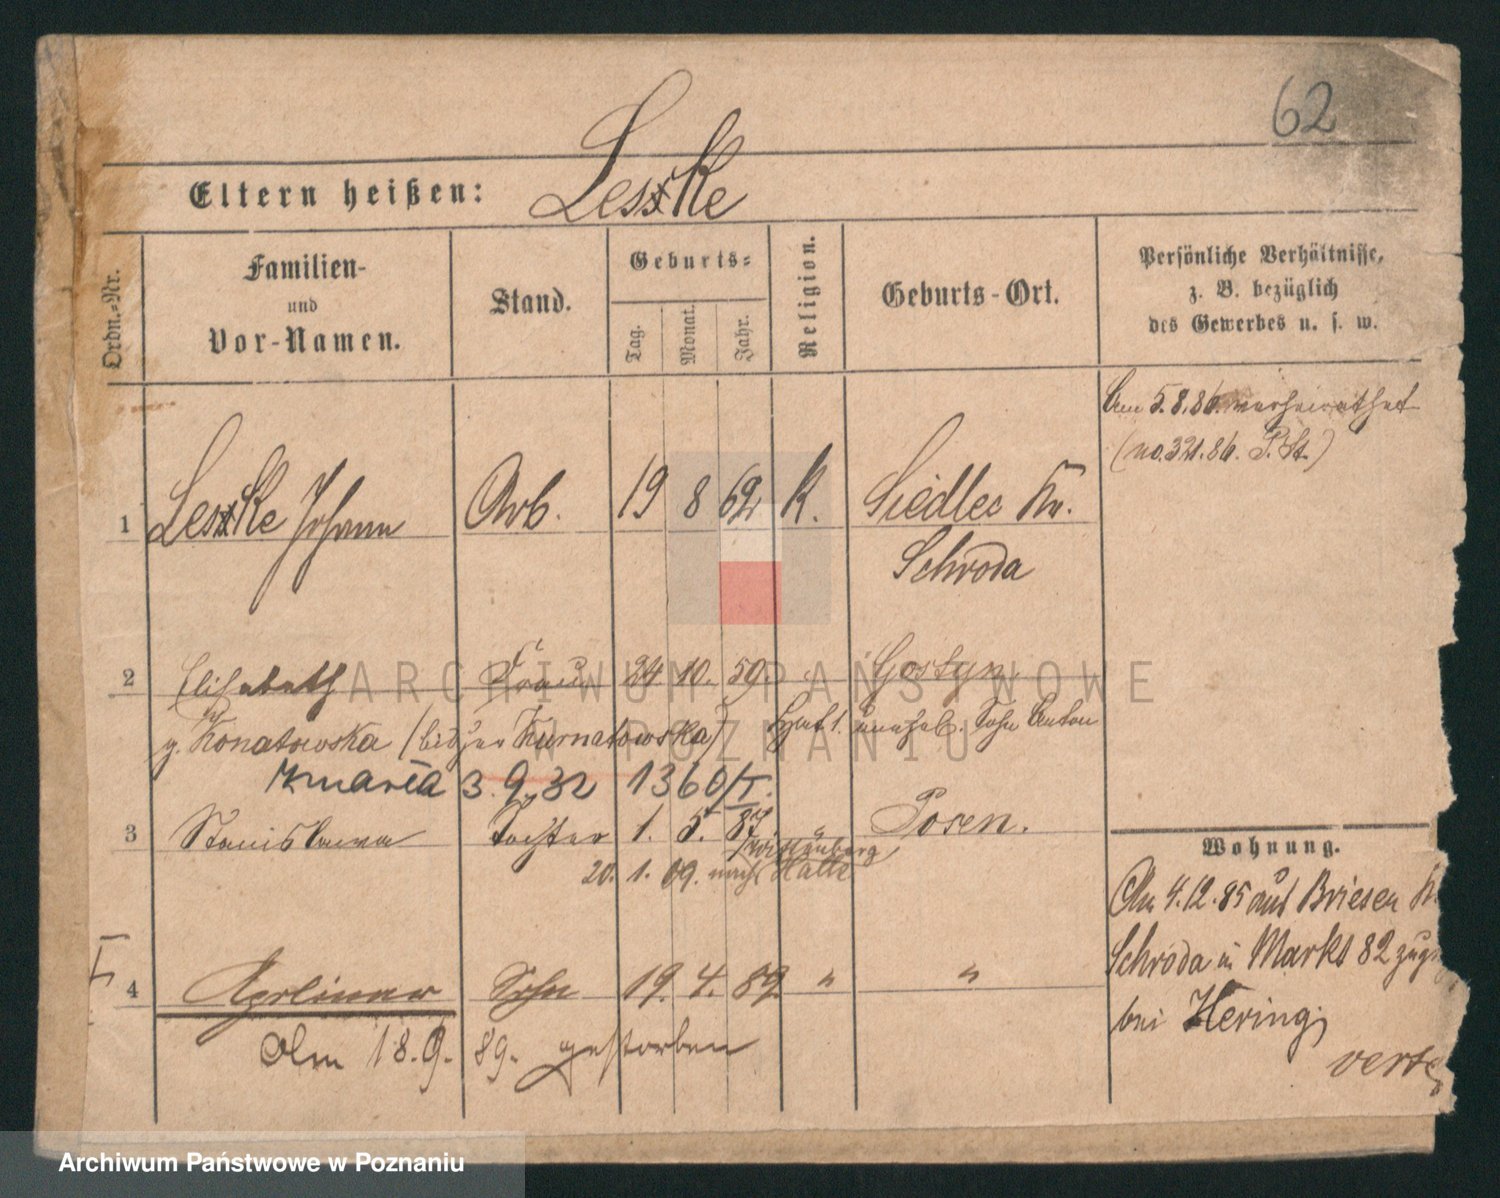 62
Eltern heißen: Leszke
Ordn.-Nr.
Familien-
und
Vor-Namen.
Stand.
Geburts-
Tag.
Monat.
Jahr.
Religion.
Geburts-Ort.
Persönliche Verhältnisse,
z. B. bezüglich
des Gewerbes u. s. w.
Am 5.8.86. verheirathet
(no. 321.86. P. St.)
1 Leszke Johann Arb. 19 8 62 K. Siedlec Kr.
Schroda
2 Elisabeth Frau 24. 10. 59. " Gostyn
g. Konatowska (bisher Kurnatowska) Hat 1 unehel. Sohn Anton
zmarła 3.9.32 1360/I.
3 Stanislawa Tochter 1. 5. 87 " Posen.
20. 1. 09. nach Halle
/Wittenberg
4 Apolinar Sohn 19. 4. 89. " "
Am 18.9. 89. gestorben
Wohnung.
Am 4.12.85 aus Briesen K.
Schroda n Markt 82 zugez
bei Hering;
verte
ARCHIWUM PAŃSTWOWE
W POZNANIU
Archiwum Państwowe w Poznaniu